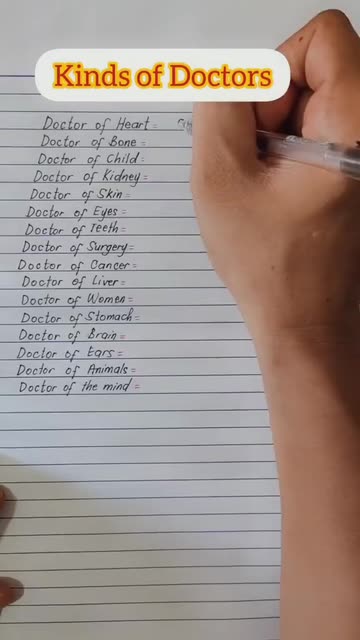 Kinds of Doctors
Doctor of Heart =
Doctor of Bone =
Doctor of Child =
Doctor of Kidney =
Doctor of Skin =
Doctor of Eyes =
Doctor of Teeth =
Doctor of Surgery =
Doctor of Cancer =
Doctor of Liver =
Doctor of Women =
Doctor of Stomach =
Doctor of Brain =
Doctor of Ears =
Doctor of Animals =
Doctor of the mind =